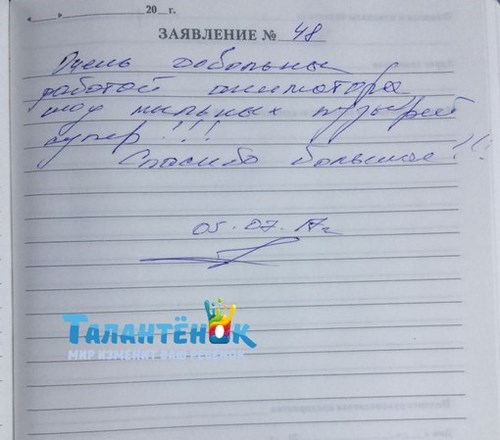 «___» __________ 20__ г.
ЗАЯВЛЕНИЕ № 48
Очень довольны
работой аниматора
шоу мыльных пузырей
супер!!!
Спасибо большое!!
05.07.17г
ТАЛАНТЁНОК
МИР ИЗМЕНИТ ВАШ РЕБЕНОК